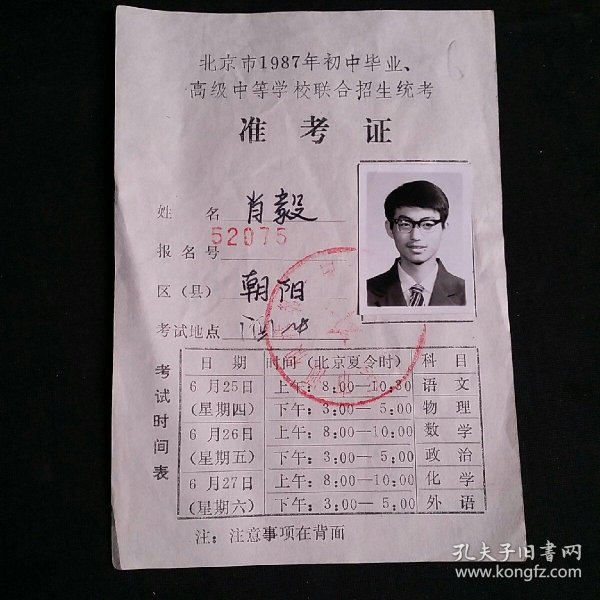 北京市1987年初中毕业、
高级中等学校联合招生统考
准考证
姓名 肖毅
报名号 52075
区(县) 朝阳
考试地点
考试时间表
日期 时间(北京夏令时) 科目
6月25日 上午:8:00—10:30 语文
(星期四) 下午:3:00—5:00 物理
6月26日 上午:8:00—10:00 数学
(星期五) 下午:3:00—5:00 政治
6月27日 上午:8:00—10:00 化学
(星期六) 下午:3:00—5:00 外语
注:注意事项在背面
孔夫子旧书网
www.kongfz.com